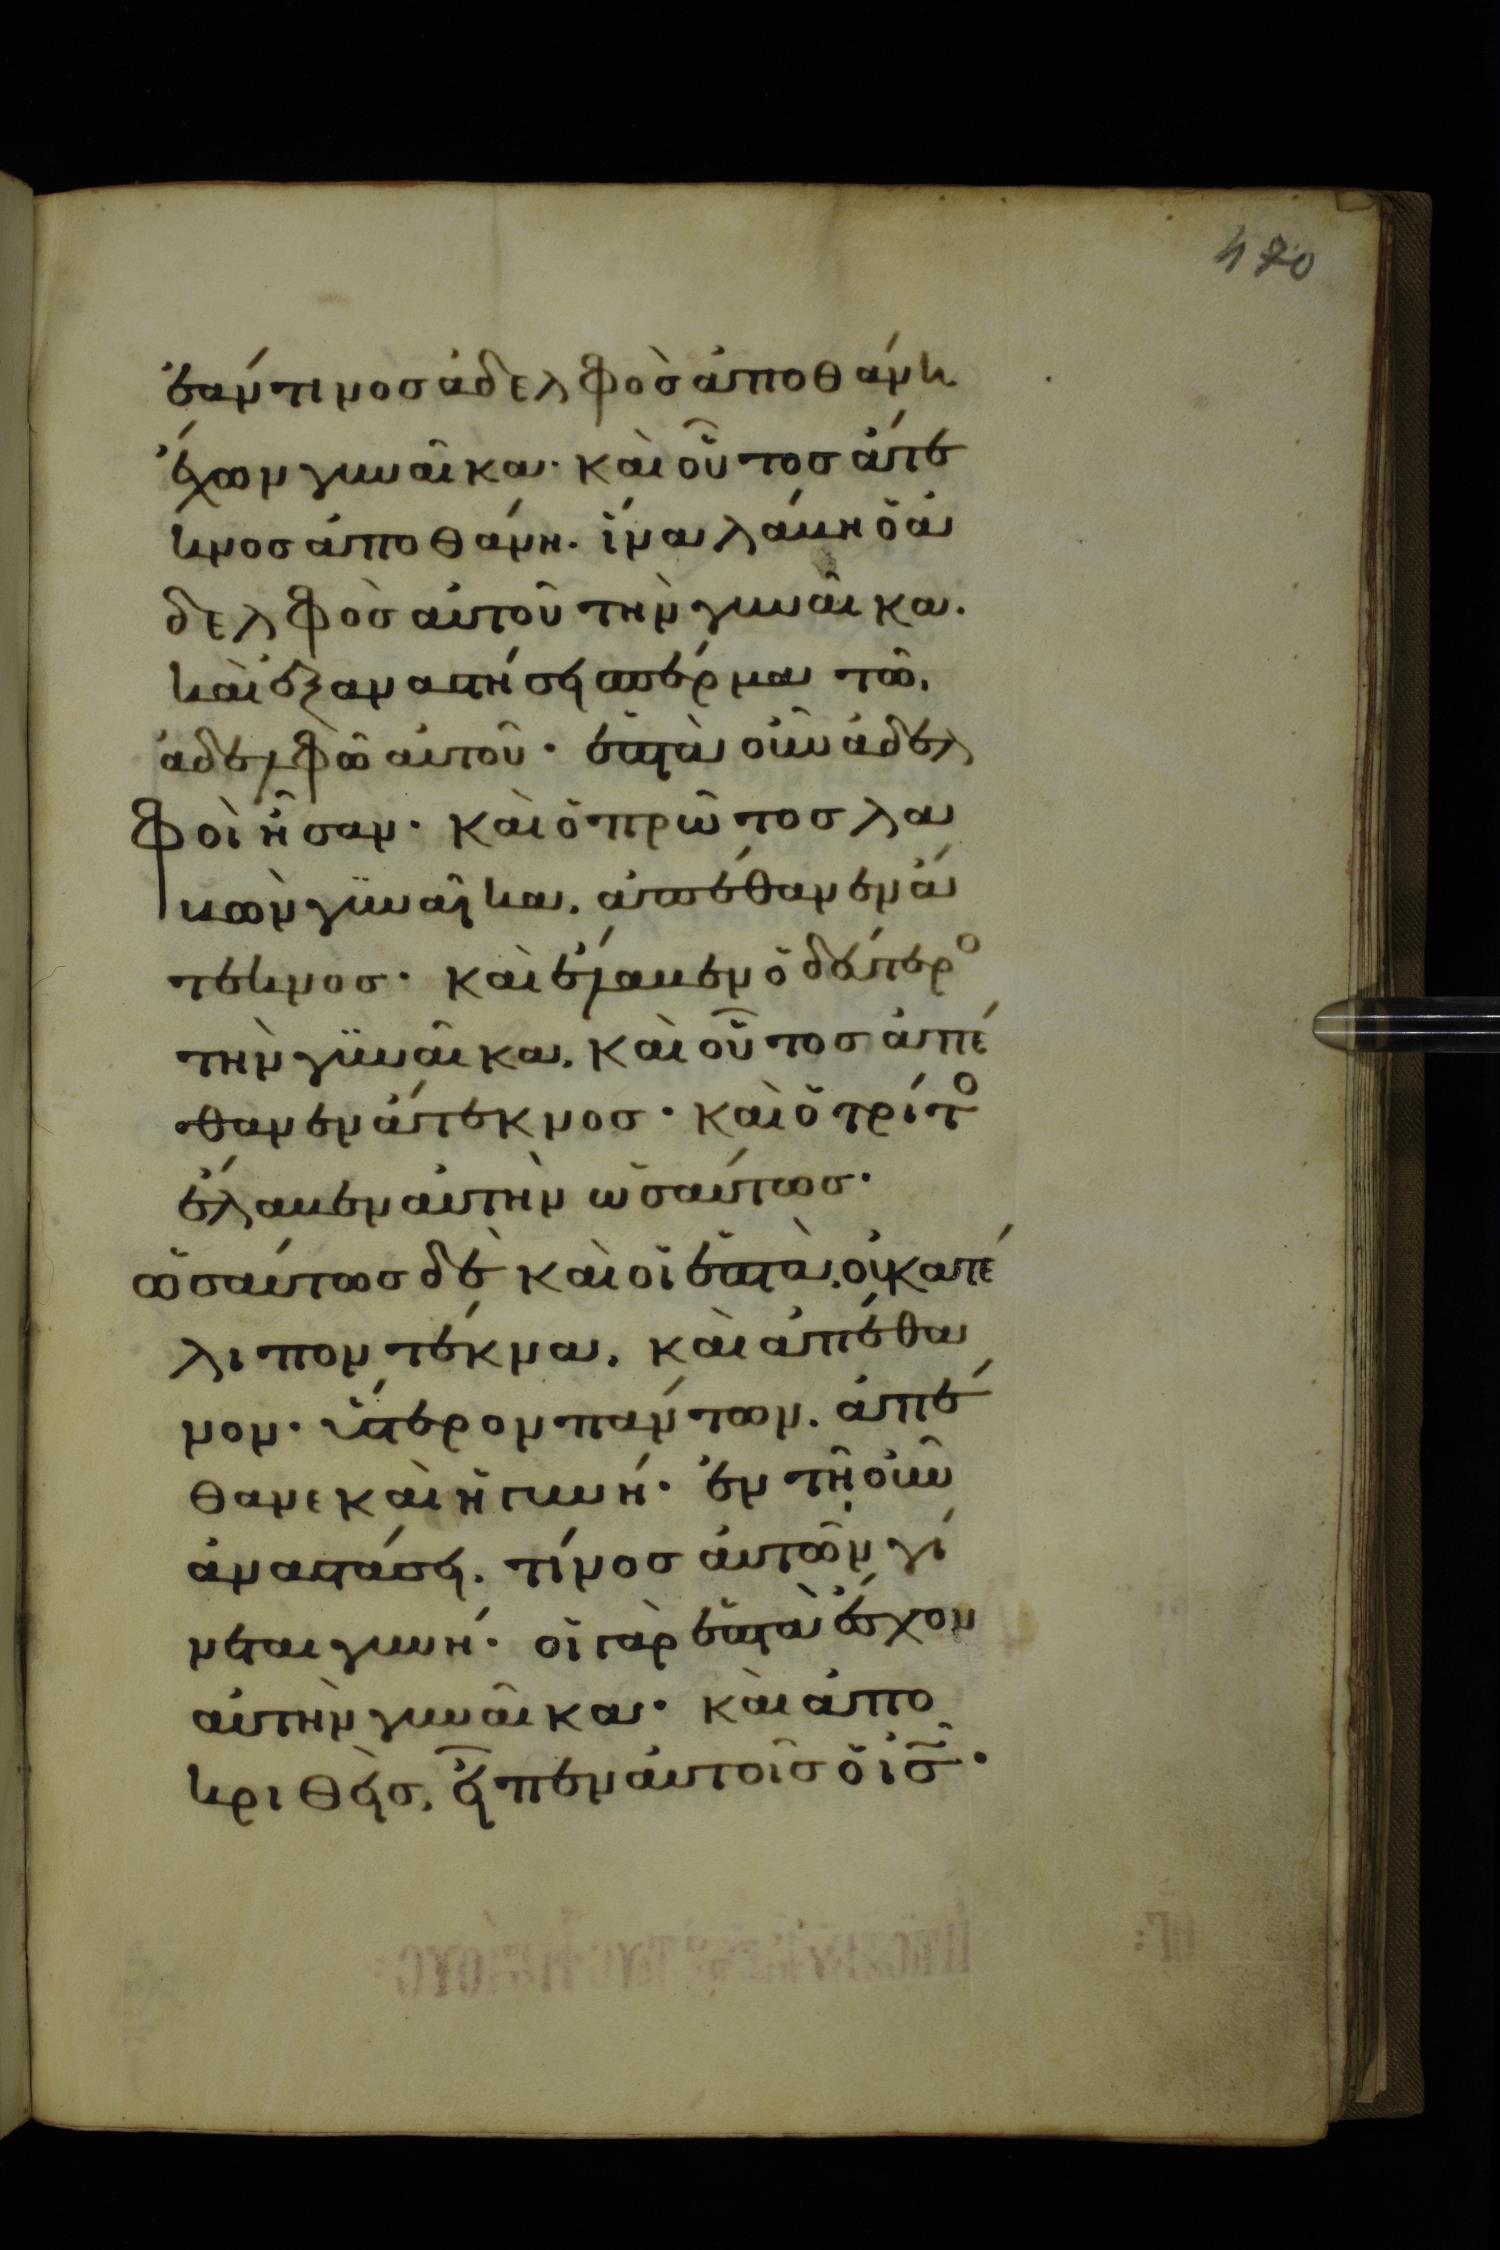 470
ἐάν τινος ἀδελφὸς ἀποθάνη
ἔχων γυναῖκα· καὶ οὗτος ἄτε
κνος ἀποθάνη. ἵνα λάβη ὁ ἀ
δελφὸς αὐτοῦ τὴν γυναῖκα.
καὶ ἐξαναστήσει σπέρμα τῶ.
ἀδελφῶ αὐτοῦ· ἑπτὰ οὖν ἀδελ
φοὶ ἦσαν· καὶ ὁ πρῶτος λα
βὼν γϋναῖκα. ἀπέθανεν ἄ
τεκνος· καὶ ἔλαβεν ὁ δεύτερο
τὴν γϋναῖκα. καὶ οὗτος ἀπέ
θανεν ἄτεκνος· καὶ ὁ τρίτο
ἔλαβεν αὐτὴν ὡσαύτως·
ὡσαύτως δὲ καὶ οἱ ἑπτὰ. οὐ κατέ
λιπον τέκνα. καὶ ἀπέθα
νον· ὕστερον πάντων. ἀπέ
θανε καὶ ἡ γυνή· ἐν τῆ οὖν
ἀναστάσει. τίνος αὐτῶν γί
νεται γυνή· οἱ γὰρ ἑπτὰ ἔσχον
αὐτὴν γυναῖκα· καὶ ἀπο
κριθεὶς, εἶπεν αὐτοῖς ὁ ἰς̅·